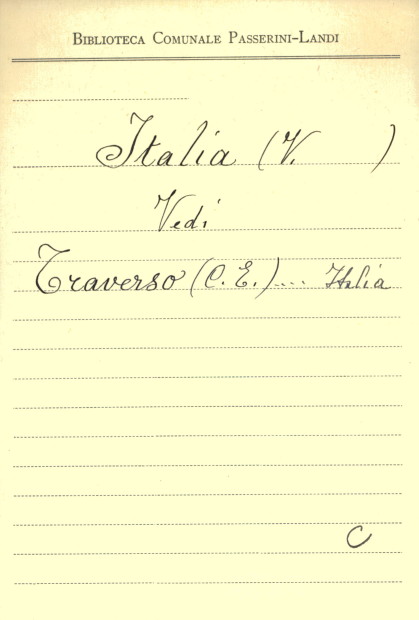 Biblioteca Comunale Passerini-Landi
Italia (V. )
Vedi
Traverso (C. E.).... Italia
C